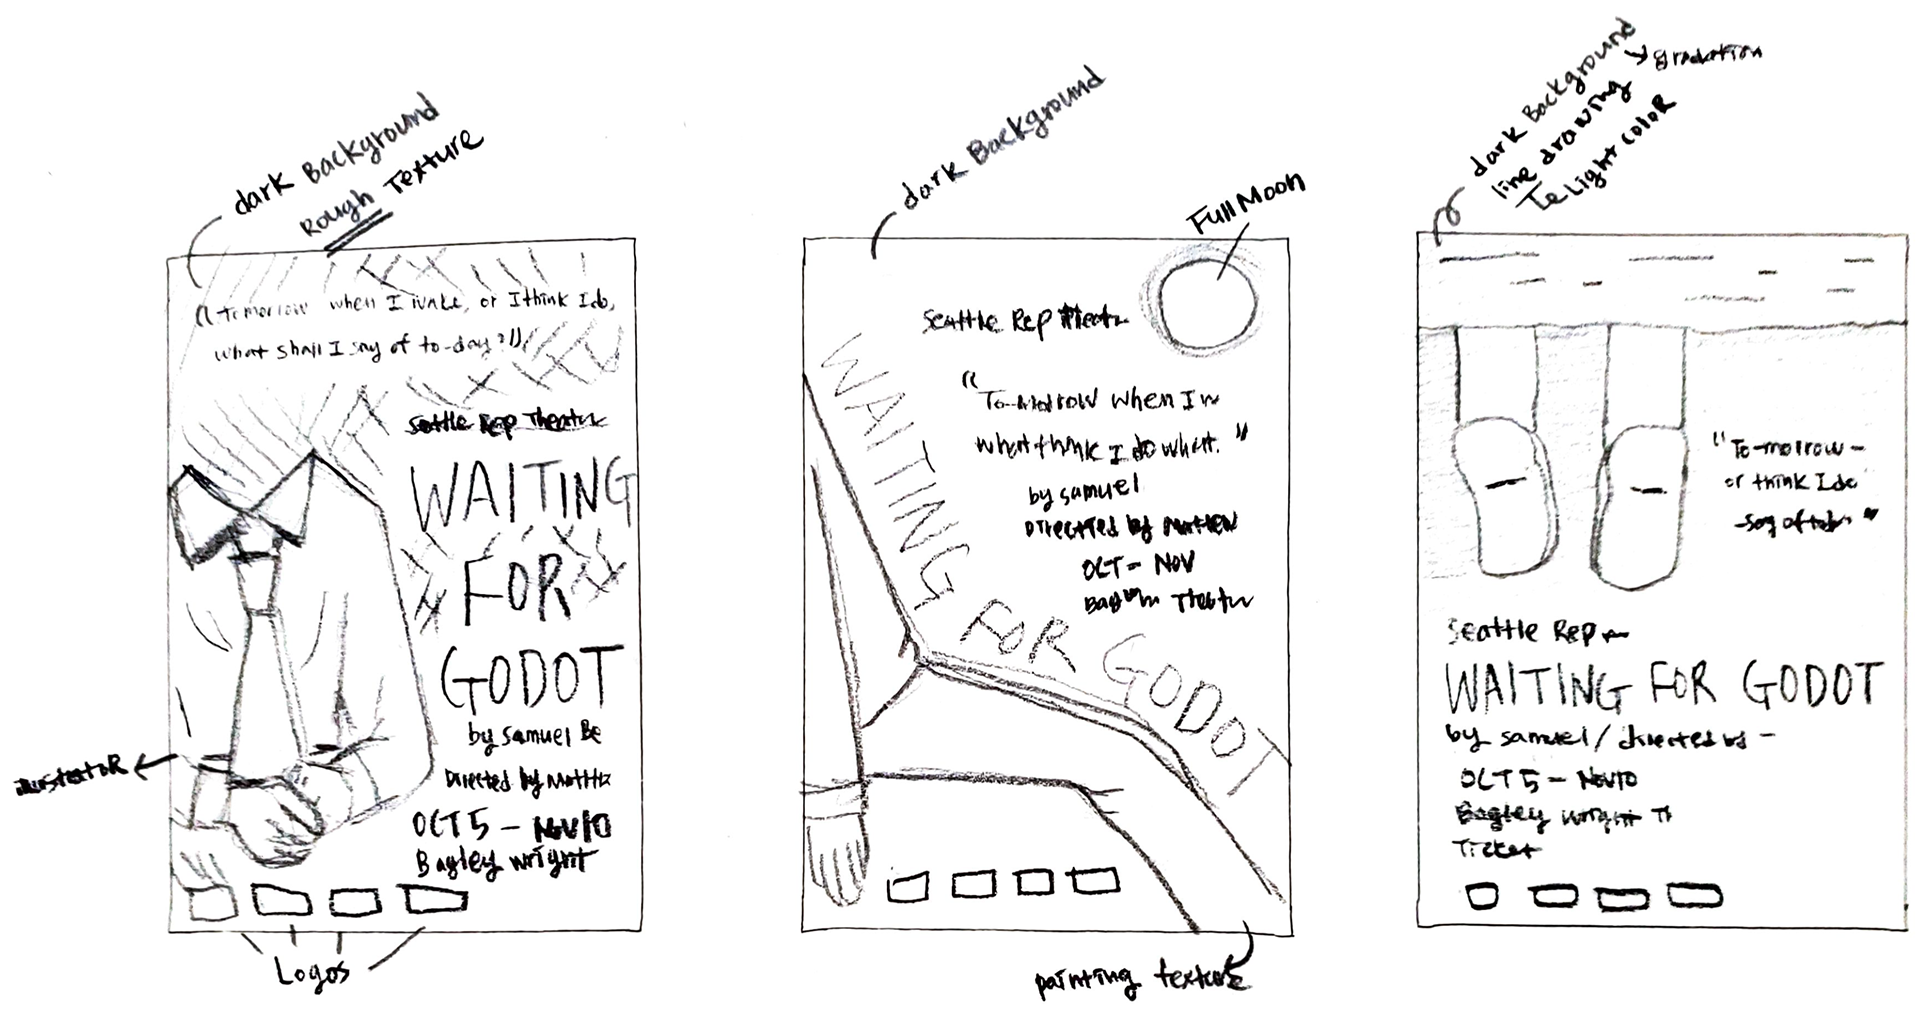 dark Background
Rough Texture
"Tomorrow when I wake, or I think I do,
what shall I say of to-day?"
Seattle Rep Theatre
WAITING
FOR
GODOT
by Samuel Be
Directed by
OCT 5 – NOV 10
Bagley wright
Logos
dark Background
Full Moon
Seattle Rep Theatr
WAITING FOR GODOT
"To-morrow when I w
what think I do what."
by Samuel
Directed by
OCT – NOV
painting texture
dark Background
gradation
line drawing
Light coloR
"To-morrow –
or think I do
Seattle Rep
WAITING FOR GODOT
by Samuel / directed by –
OCT 5 – NOV 10
Bagley wright T
Ticket